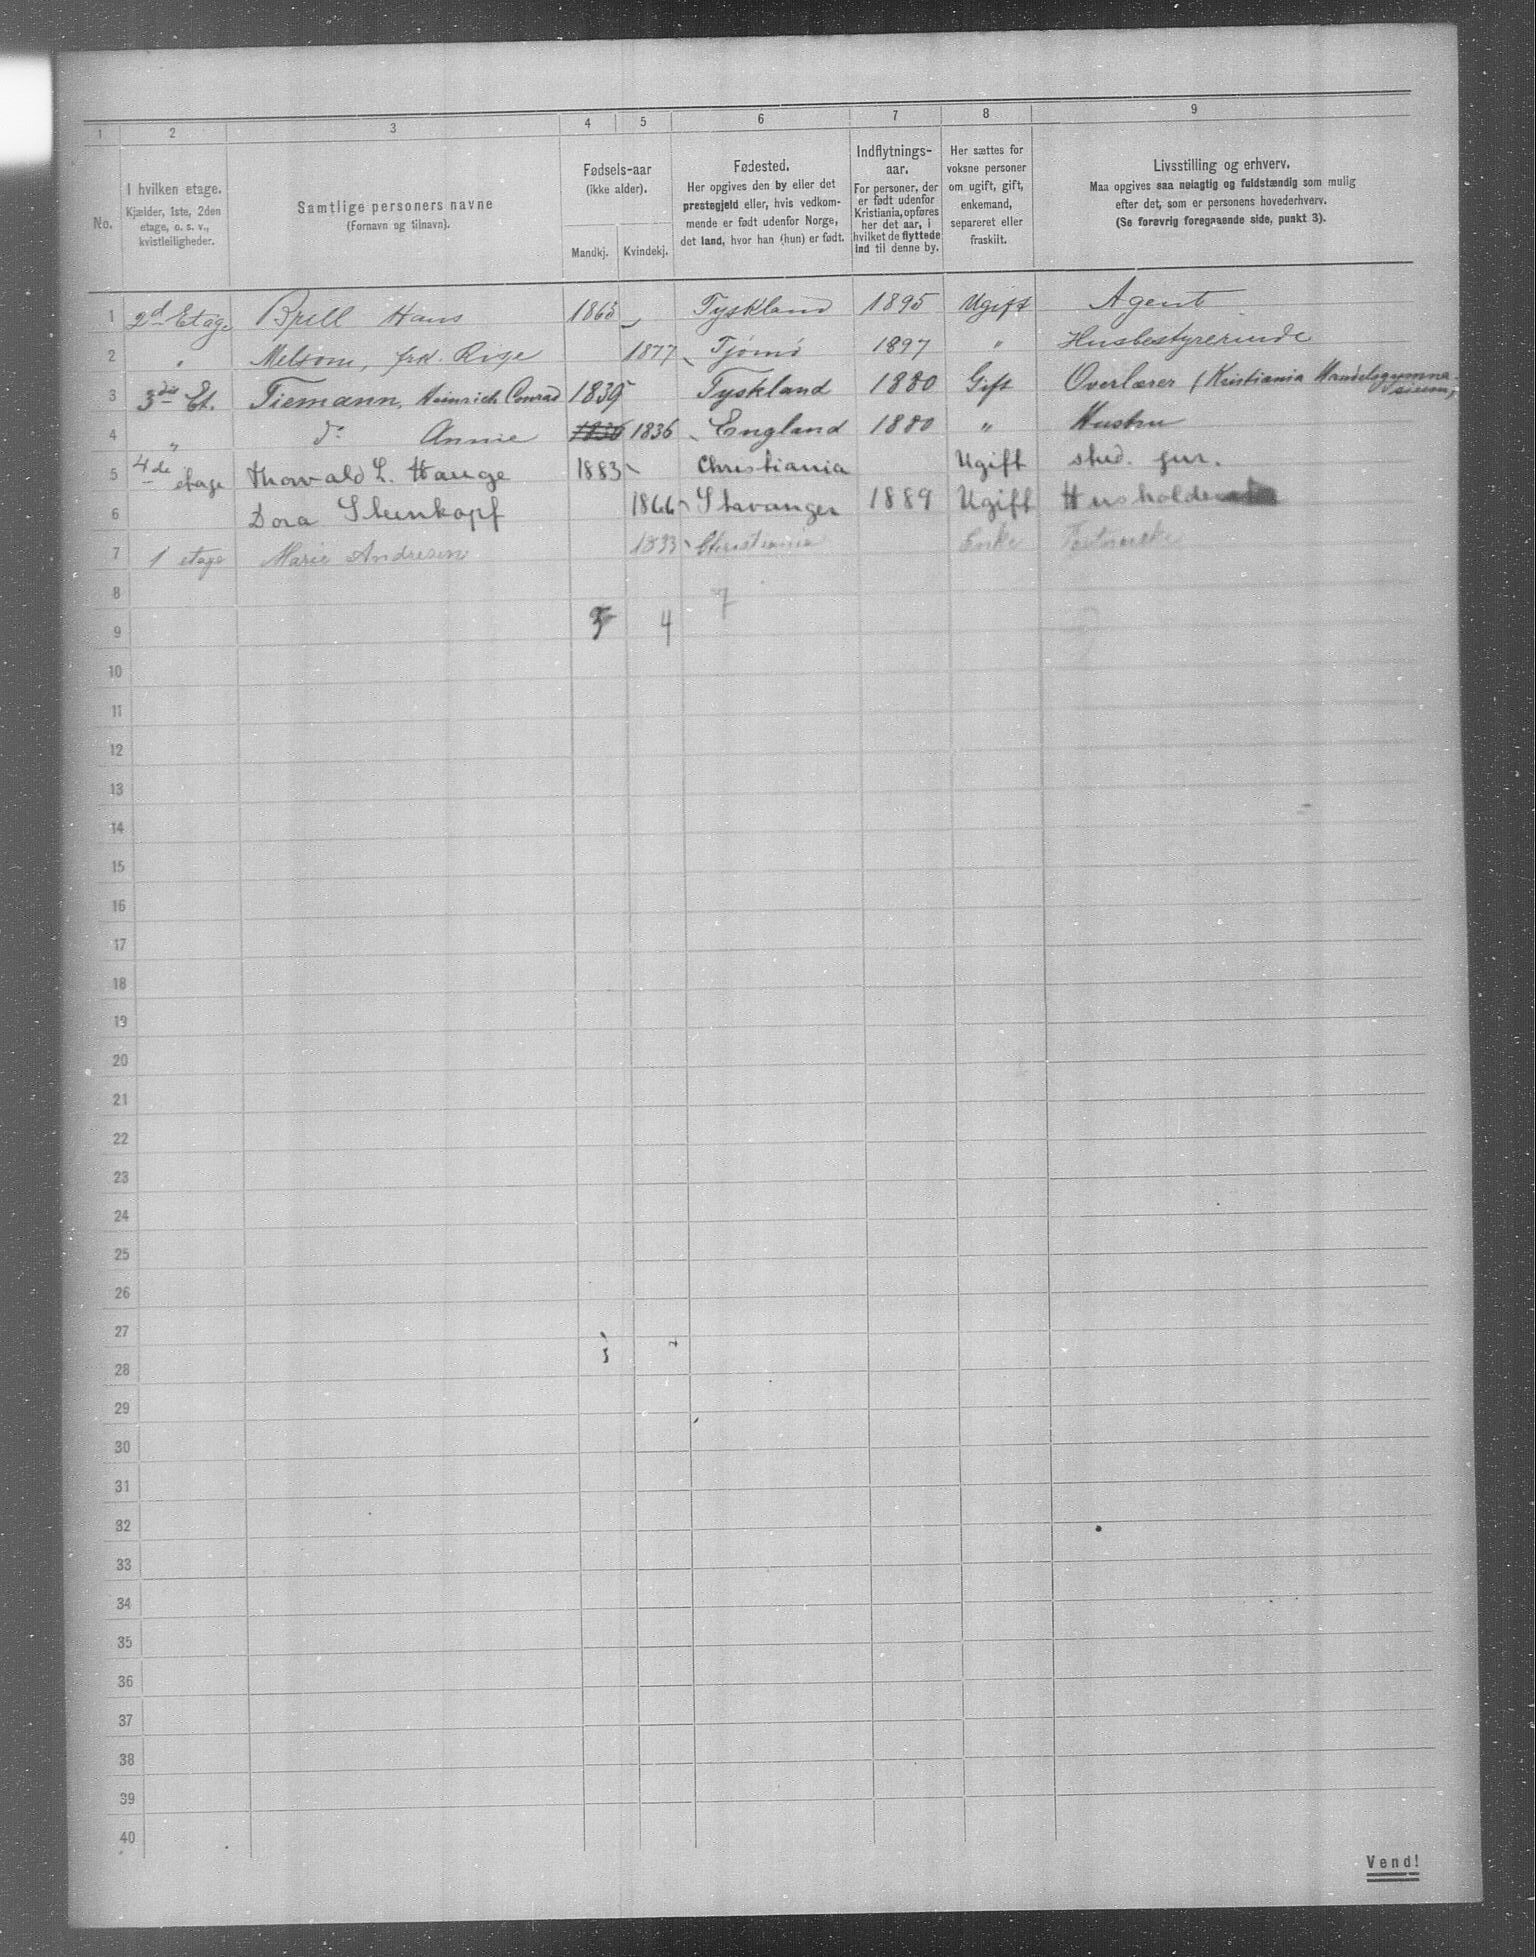 1 2 3 4 5 6 7 8 9
No.
I hvilken etage.
Kjælder, 1ste, 2den
etage, o. s. v.,
kvistleiligheder.
Samtlige personers navne
(Fornavn og tilnavn).
Fødsels-aar
(ikke alder).
Mandkj. Kvindekj.
Fødested.
Her opgives den by eller det
prestegjeld eller, hvis vedkom-
mende er født udenfor Norge,
det land, hvor han (hun) er født.
Indflytnings-
aar.
For personer, der
er født udenfor
Kristiania, opføres
her det aar, i
hvilket de flyttede
ind til denne by.
Her sættes for
voksne personer
om ugift, gift,
enkemand,
separeret eller
fraskilt.
Livsstilling og erhverv.
Maa opgives saa nøiagtig og fuldstændig som mulig
efter det, som er personens hovederhverv.
(Se forøvrig foregaaende side, punkt 3).
1 2d Etage Brill Hans 1865 Tyskland 1895 Ugift Agent
2 " Melsom, frk. 1877 Tjømø 1897 " Husbestyrerinde
3 3die Et. Tiemann, Heinrich Conrad 1839 Tyskland 1880 Gift Overlærer (Kristiania Handelsgymna-
sium)
4 " do Annie 1836 1836 England 1880 " Hustru
5 4de etage Thorvald L. Hauge 1883 Christiania Ugift stud. jur.
6 Dora Steinkopf 1866 Stavanger 1889 Ugift
7 1 etage Marie Andresen 1833 Christiania Enke
8 7
9 3 4
10
11
12
13
14
15
16
17
18
19
20
21
22
23
24
25
26
27
28
29
30
31
32
33
34
35
36
37
38
39
40
Vend!